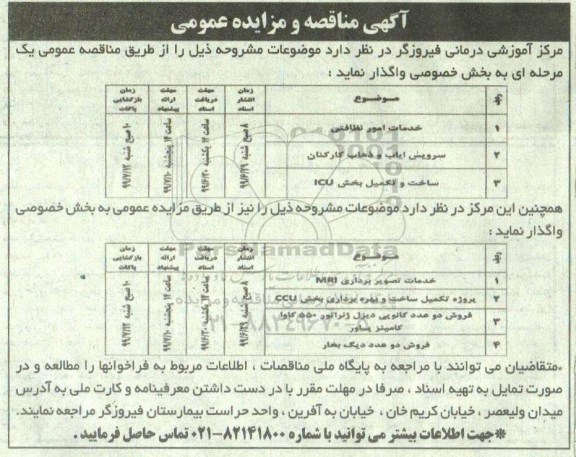 آگهی مناقصه و مزایده عمومی
مرکز آموزشی درمانی فیروزگر در نظر دارد موضوعات مشروحه ذیل را از طریق مناقصه عمومی یک
مرحله ای به بخش خصوصی واگذار نماید :
ردیف موضوع زمان انتشار اسناد مهلت دریافت اسناد مهلت ارائه پیشنهاد زمان بازگشایی پاکات
۱ خدمات امور نظافتی
۲ سرویس ایاب و ذهاب کارکنان
۳ ساخت و تکمیل بخش ICU
۸ صبح شنبه ۹۹/۶/۲۹
ساعت ۱۴ یکشنبه ۹۹/۶/۳۰
ساعت ۱۴ پنجشنبه ۹۹/۷/۱۰
۱۰ صبح شنبه ۹۹/۷/۱۲
همچنین این مرکز در نظر دارد موضوعات مشروحه ذیل را نیز از طریق مزایده عمومی به بخش خصوصی
واگذار نماید :
ردیف موضوع زمان انتشار اسناد مهلت دریافت اسناد مهلت ارائه پیشنهاد زمان بازگشایی پاکات
۱ خدمات تصویر برداری MRI
۲ پروژه تکمیل ساخت و بهره برداری بخش CCU
۳ فروش دو عدد کانوپی دیزل ژنراتور ۵۵۰ کاوا
کامینز پساور
۴ فروش دو عدد دیگ بخار
۸ صبح شنبه ۹۹/۶/۲۹
ساعت ۱۴ یکشنبه ۹۹/۶/۳۰
ساعت ۱۴ پنجشنبه ۹۹/۷/۱۰
۱۰ صبح شنبه ۹۹/۷/۱۲
ParsNamadData
۰۲۱-۸۸۳۴۹۶۷۰
*متقاضیان می توانند با مراجعه به پایگاه ملی مناقصات ، اطلاعات مربوط به فراخوانها را مطالعه و در
صورت تمایل به تهیه اسناد ، صرفا در مهلت مقرر با در دست داشتن معرفینامه و کارت ملی به آدرس
میدان ولیعصر ، خیابان کریم خان ، خیابان به آفرین ، واحد حراست بیمارستان فیروزگر مراجعه نمایند.
*جهت اطلاعات بیشتر می توانید با شماره ۸۲۱۴۱۸۰۰-۰۲۱ تماس حاصل فرمایید .